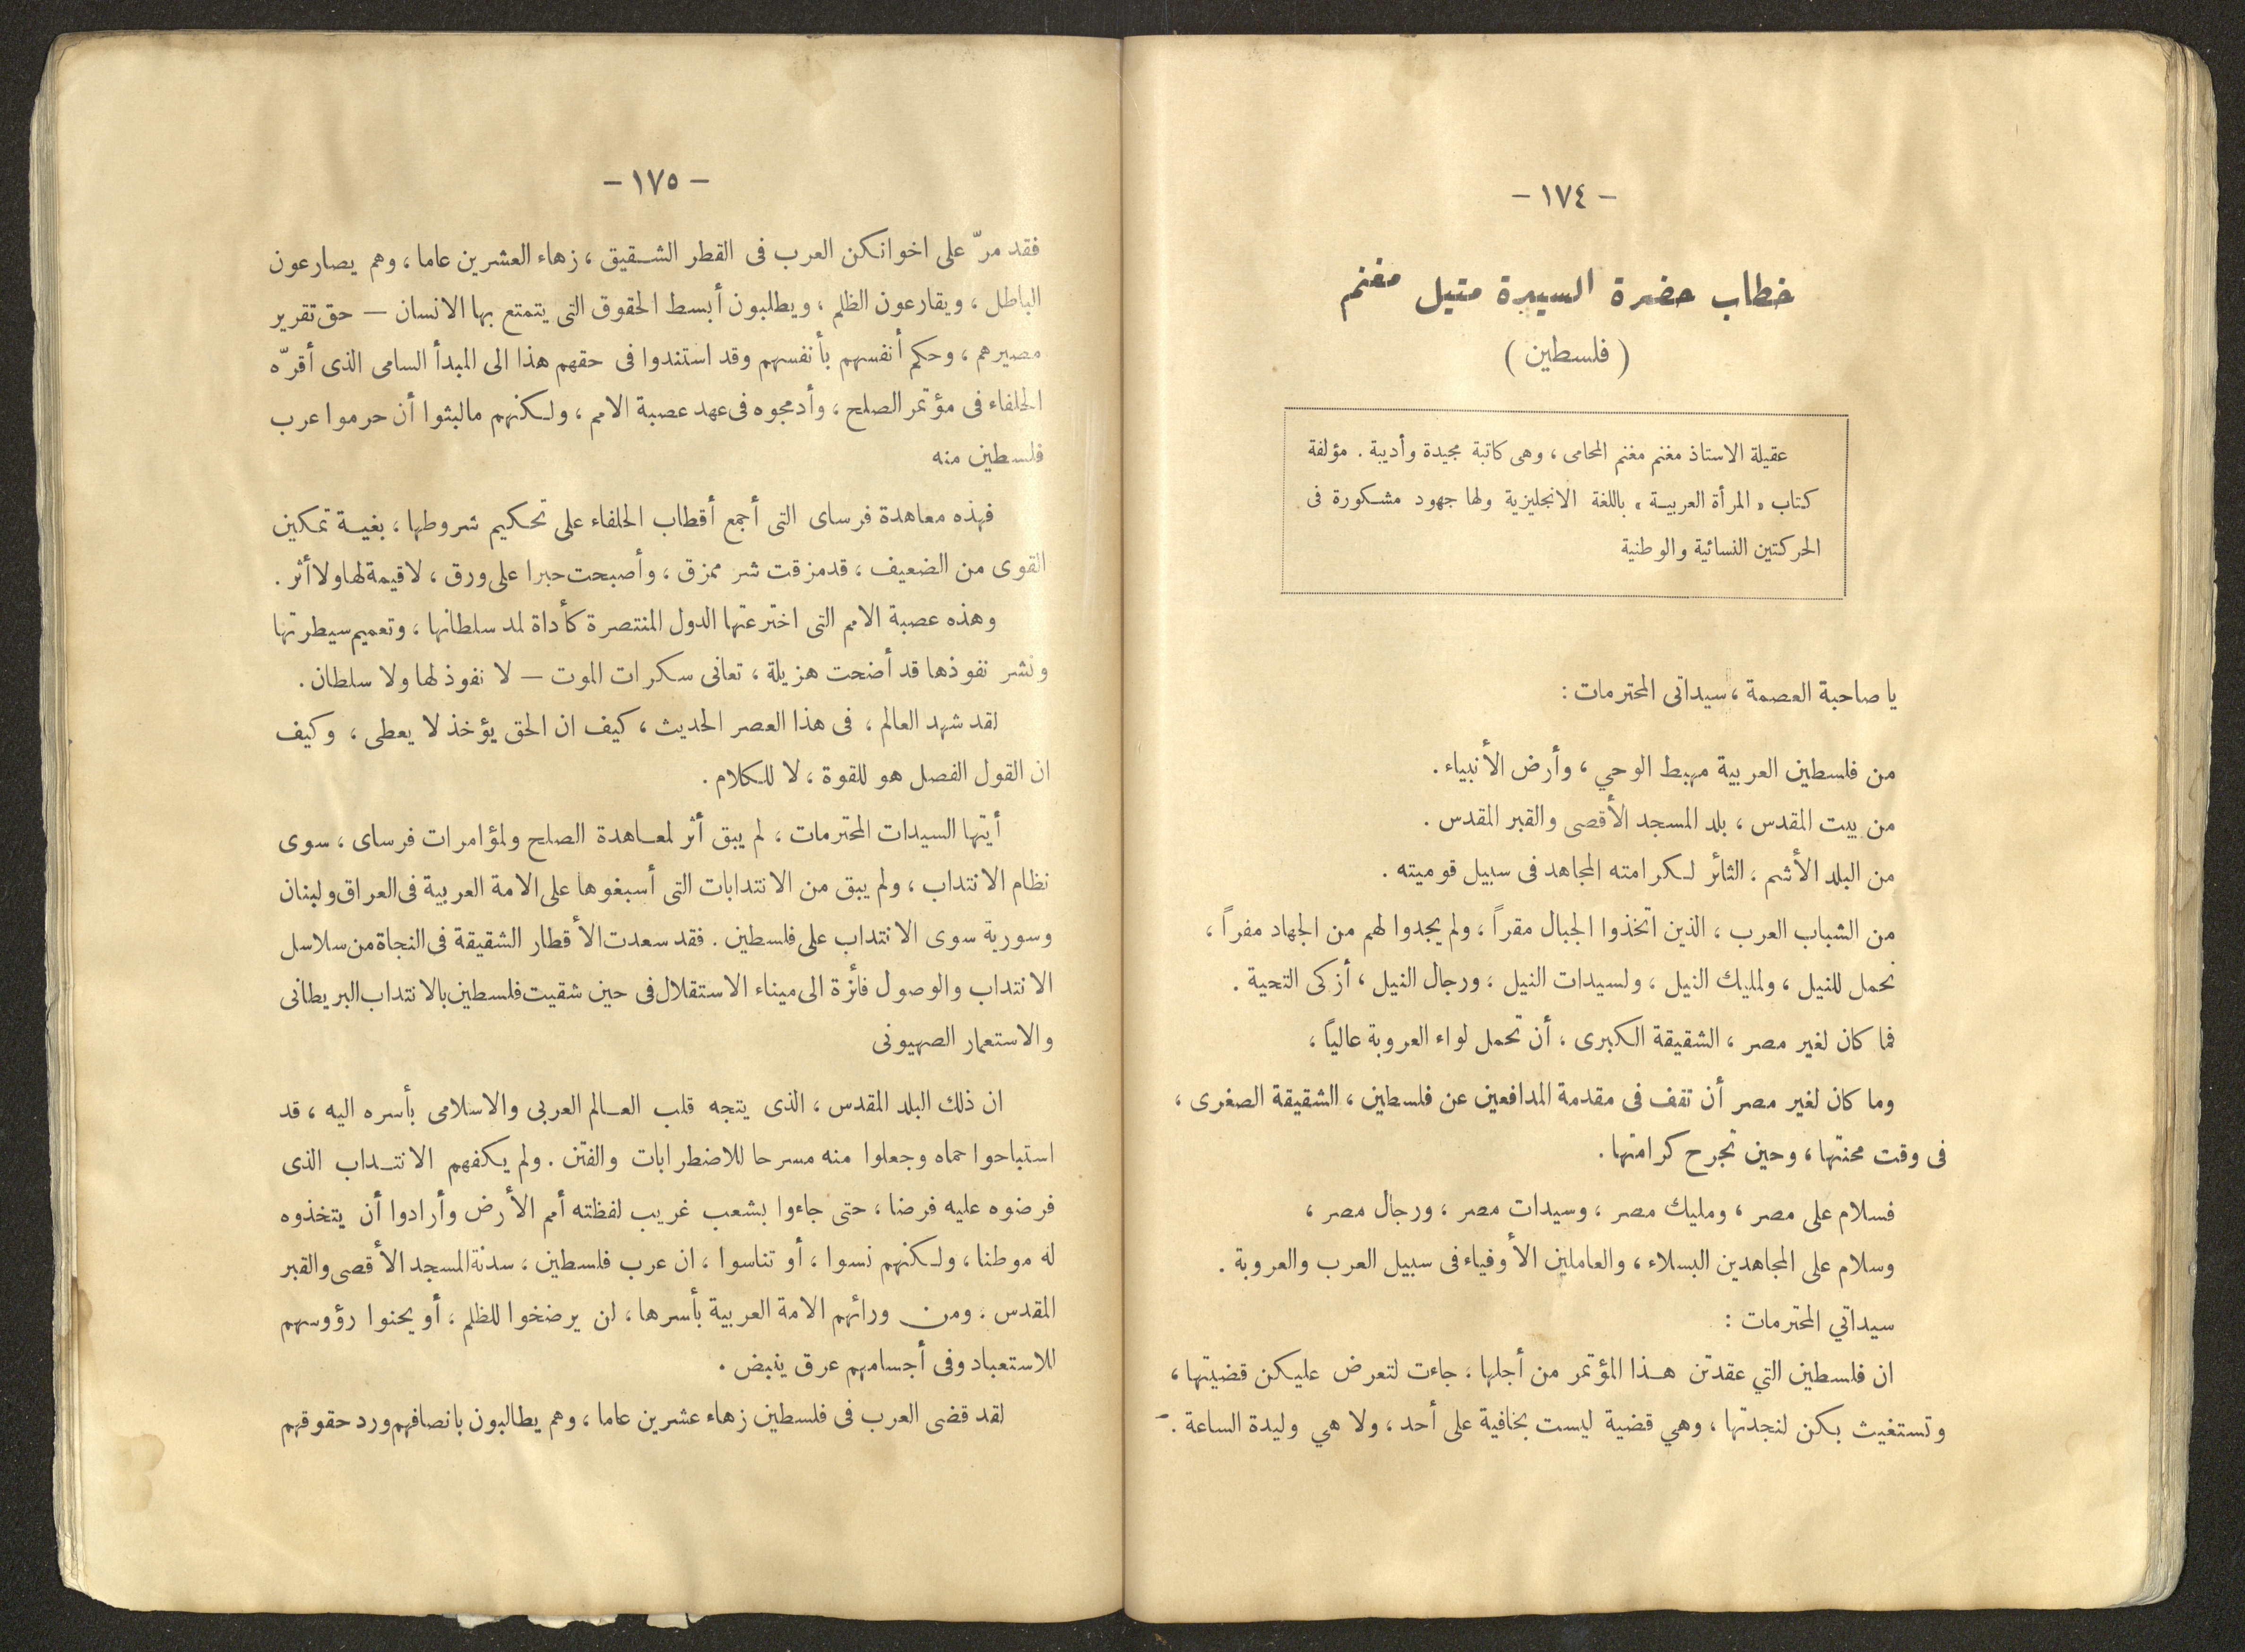 - ١٧٤ -
خطاب حضرة السيدة متيل مغنم
( فلسطين )
عقيلة الاستاذ مغنم مغنم المحامى ، وهى كاتبة مجيدة وأديبة . مؤلفة
كتاب « المرأة العربيـة » باللغة الانجليزية ولها جهود مشكورة فى
الحركتين النسائية والوطنية
يا صاحبة العصمة ، سيداتى المحترمات :
من فلسطين العربية مهبط الوحي ، وأرض الأنبياء .
من بيت المقدس ، بلد المسجد الأقصى والقبر المقدس .
من البلد الأشم ، الثائر لكرامته المجاهد فى سبيل قوميته .
من الشباب العرب ، الذين اتخذوا الجبال مقراً ، ولم يجدوا لهم من الجهاد مفراً ،
نحمل للنيل ، ولمليك النيل ، ولسيدات النيل ، ورجال النيل ، أزكى التحية .
فما كان لغير مصر ، الشقيقة الكبرى ، أن تحمل لواء العروبة عالياً ،
وما كان لغير مصر أن تقف فى مقدمة المدافعين عن فلسطين ، الشقيقة الصغرى ،
فى وقت محنتها ، وحين تجرح كرامتها .
فسلام على مصر ، ومليك مصر ، وسيدات مصر ، ورجال مصر ،
وسلام على المجاهدين البسلاء ، والعاملين الأوفياء فى سبيل العرب والعروبة .
سيداتي المحترمات :
ان فلسطين التي عقدتن هـذا المؤتمر من أجلها ، جاءت لتعرض عليكن قضيتها ،
وتستغيث بكن لنجدتها ، وهي قضية ليست بخافية على أحد ، ولا هي وليدة الساعة . -
- ١٧٥ -
فقد مرّ على اخوانكن العرب فى القطر الشـقيق ، زهاء العشرين عاما ، وهم يصارعون
الباطل ، ويقارعون الظلم ، ويطلبون أبسط الحقوق التى يتمتع بها الانسان — حق تقرير
مصيرهم ، وحكم أنفسهم بأنفسهم وقد استندوا فى حقهم هذا الى المبدأ السامى الذى أقرّه
الحلفاء فى مؤتمر الصلح ، وأدمجوه فى عهد عصبة الامم ، ولكنهم مالبثوا أن حرموا عرب
فلسطين منه
فهذه معاهدة فرساى التى أجمع أقطاب الحلفاء على تحكيم شروطها ، بغيـة تمكين
القوى من الضعيف ، قد مزقت شر ممزق ، وأصبحت حبرا على ورق ، لا قيمة لها ولا أثر .
وهذه عصبة الامم التى اخترعتها الدول المنتصرة كأداة لمد سلطانها ، وتعميم سيطرتها
ونشر نفوذها قد أضحت هزيلة ، تعانى سكرات الموت — لا نفوذ لها ولا سلطان .
لقد شهد العالم ، فى هذا العصر الحديث ، كيف ان الحق يؤخذ لا يعطى ، وكيف
ان القول الفصل هو للقوة ، لا للكلام .
أيتها السيدات المحترمات ، لم يبق أثر لمعـاهدة الصلح ولمؤامرات فرساى ، سوى
نظام الانتداب ، ولم يبق من الانتدابات التى أسبغوها على الامة العربية فى العراق ولبنان
وسورية سوى الانتداب على فلسطين . فقد سعدت الأقطار الشقيقة فى النجاة من سلاسل
الانتداب والوصول فائزة الى ميناء الاستقلال فى حين شقيت فلسطين بالانتداب البريطانى
والاستعمار الصهيونى
ان ذلك البلد المقدس ، الذى يتجه قلب العـالم العربى والاسلامى بأسره اليه ، قد
استباحوا حماه وجعلوا منه مسرحا للاضطرابات والفتن . ولم يكفهم الانتـداب الذى
فرضوه عليه فرضا ، حتى جاءوا بشعب غريب لفظته أمم الأرض وأرادوا أن يتخذوه
له موطنا ، ولكنهم نسوا ، أو تناسوا ، ان عرب فلسطين ، سدنة المسجد الأقصى والقبر
المقدس . ومن ورائهم الامة العربية بأسرها ، لن يرضخوا للظلم ، أو يحنوا رؤوسهم
للاستعباد وفى أجسامهم عرق ينبض .
لقد قضى العرب فى فلسطين زهاء عشرين عاما ، وهم يطالبون بانصافهم ورد حقوقهم